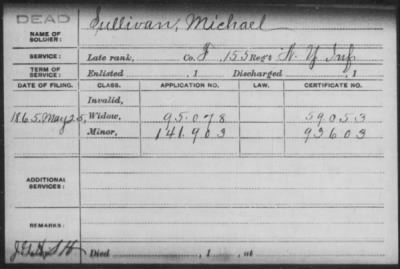 DEAD
NAME OF SOLDIER: Sullivan, Michael
SERVICE: Late rank, Co. F, 155 Reg't N. Y. Inf.
TERM OF SERVICE: Enlisted , 1 Discharged , 1
DATE OF FILING. CLASS. APPLICATION NO. LAW. CERTIFICATE NO.
Invalid,
1865, May 25, Widow, 95.078 59.053
Minor, 141.903 93603
ADDITIONAL SERVICES:
REMARKS:
Died , 1 , at